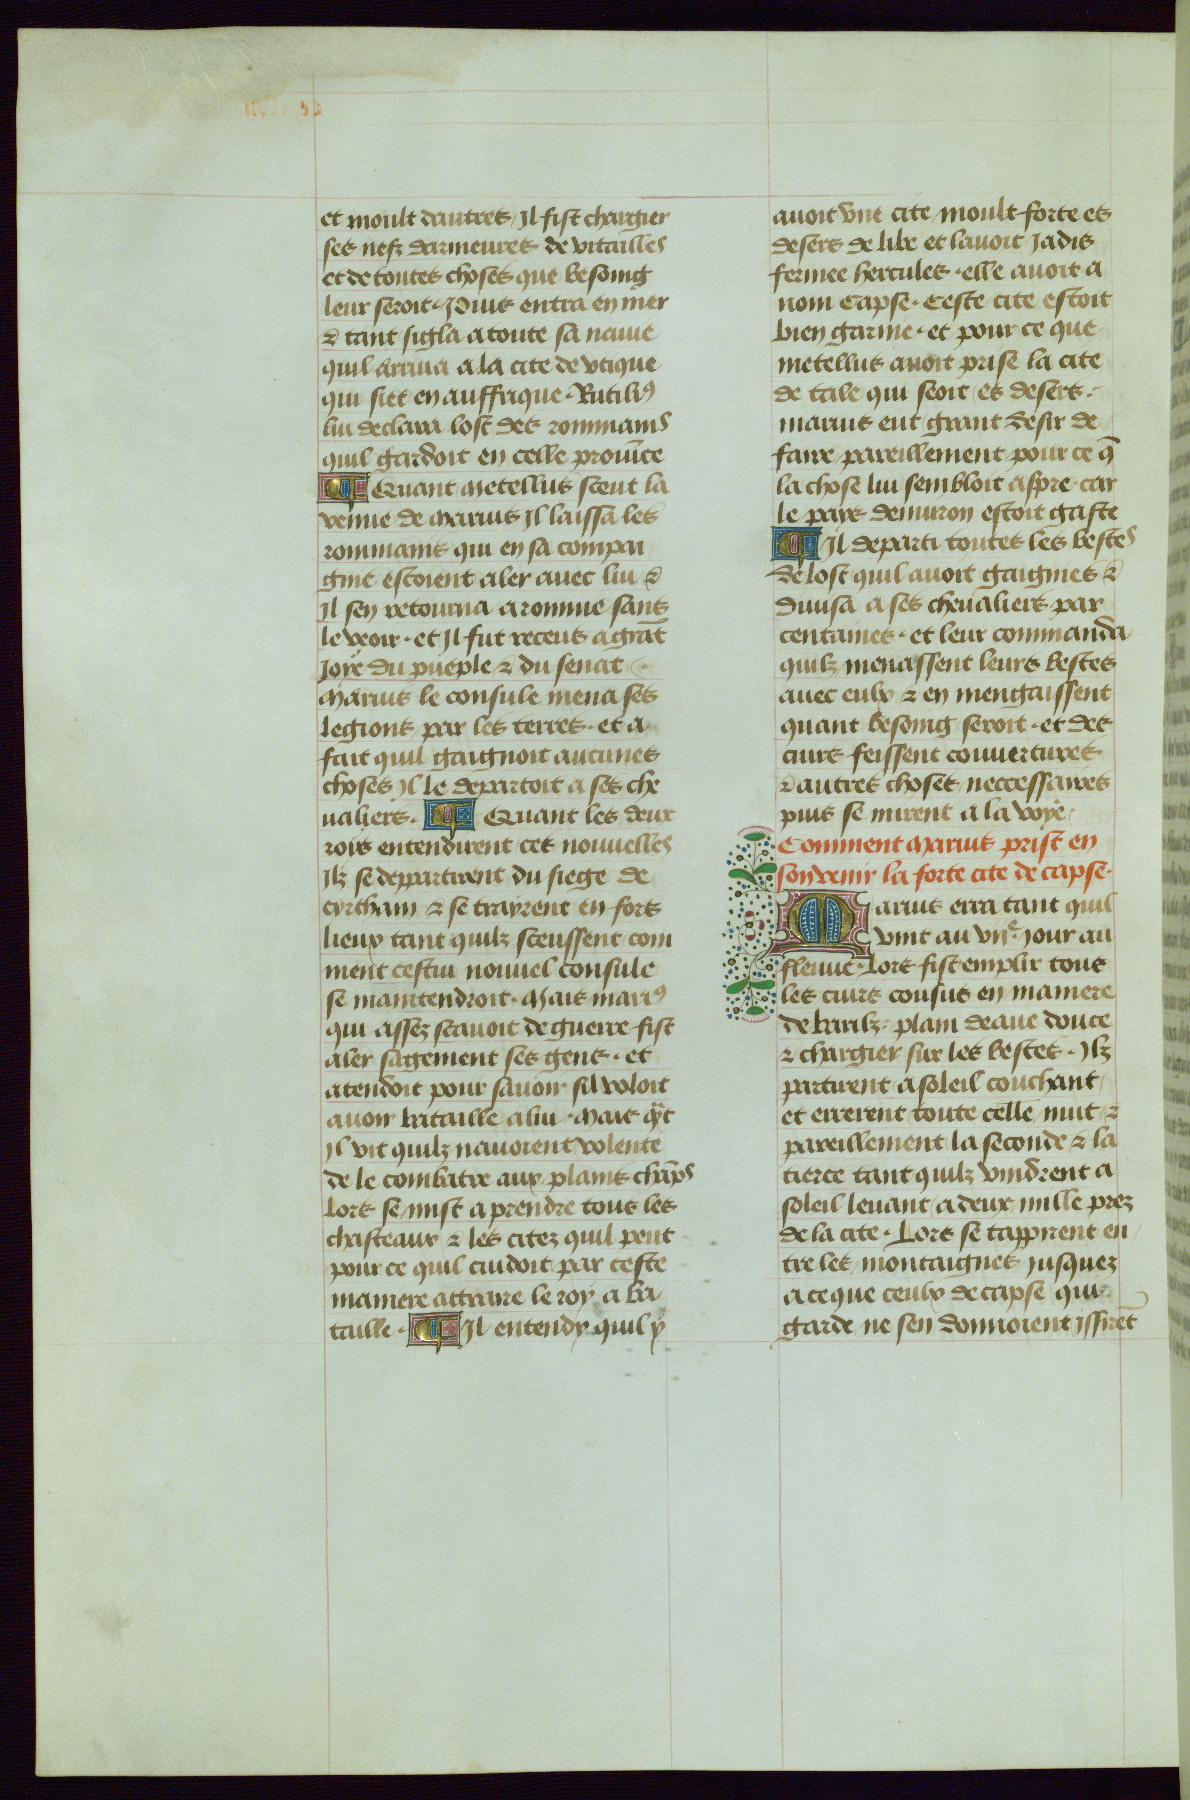 et moult dautres / Il fist chargier
ses nefz darmeures de vitailles
et de toutes choses que besoing
leur seroit. Puis entra en mer
& tant sigla a toute sa nauie
quil arriua a la cite de vtique
qui siet en auffrique. Rutiliꝯ
lui declara lost des rommains
quil gardoit en celle prouīce
Quant Metellus sceut la
venue de Marius Il laissa les
rommains qui en sa compai
gnie estoient aler auec lui &
Il sen retourna a romme sans
le veoir. et Il fut receus a grāt
Joye du pueple & du senat
Marius le consule mena ses
legions par les terres. et a
fait quil gaignoit aucunes
choses Il le departoit a ses che
ualiers. Quant les deux
rois entendirent ces nouuelles
Ilz se departirent du siege de
cyrcham & se trayrent en fors
lieux tant quilz sceussent com
ment cestui nouuel consule
se maintendroit. Mais mariꝯ
qui assez scauoit de guerre fist
aler sagement ses gens. et
atendoit pour sauoir sil voloit
auoir bataille a lui. Mais qāt
Il vit quilz nauoient volente
de le combatre aux plains chāps
Lors se mist a prendre tous les
chasteaux & les citez quil peut
pour ce quil cuidoit par ceste
maniere attraire le roy a ba
taille. Il entendy quil y
auoit vne cite moult forte es
desers de libe et lauoit Jadis
fermee hercules. elle auoit a
nom Capse. Ceste cite estoit
bien garnie. et pour ce que
metellus auoit prise la cite
de tale qui seoit es desers.
marius eut grant desir de
faire pareillement pour ce q̄
la chose lui sembloit aspre. car
le pays denuiron estoit gaste
Il departi toutes les bestes
de lost quil auoit gaignies &
diuisa a ses cheualiers par
centaines. et leur commanda
quilz menassent leurs bestes
auec eulx & en mengaissent
quant besoing seroit. et des
cuirs feissent couuertures
& autres choses neccessaires
puis se mirent a la voye.
Comment Marius prist en
son venir la forte cite de capse.
Marius erra tant quil
vint au vije. Jour au
fleuue. Lors fist emplir tous
les cuirs cousus en maniere
de barilz. plain deaue douce
& chargier sur les bestes. Ilz
partirent a soleil couchant
et errerent toute celle nuit &
pareillement la seconde & la
tierce tant quilz vindrent a
soleil leuant a deux mille prez
de la cite. Lors se tappirent en
tre les montaignes jusquez
a ce que ceulx de capse qui
garde ne sen donnoient jssirēt